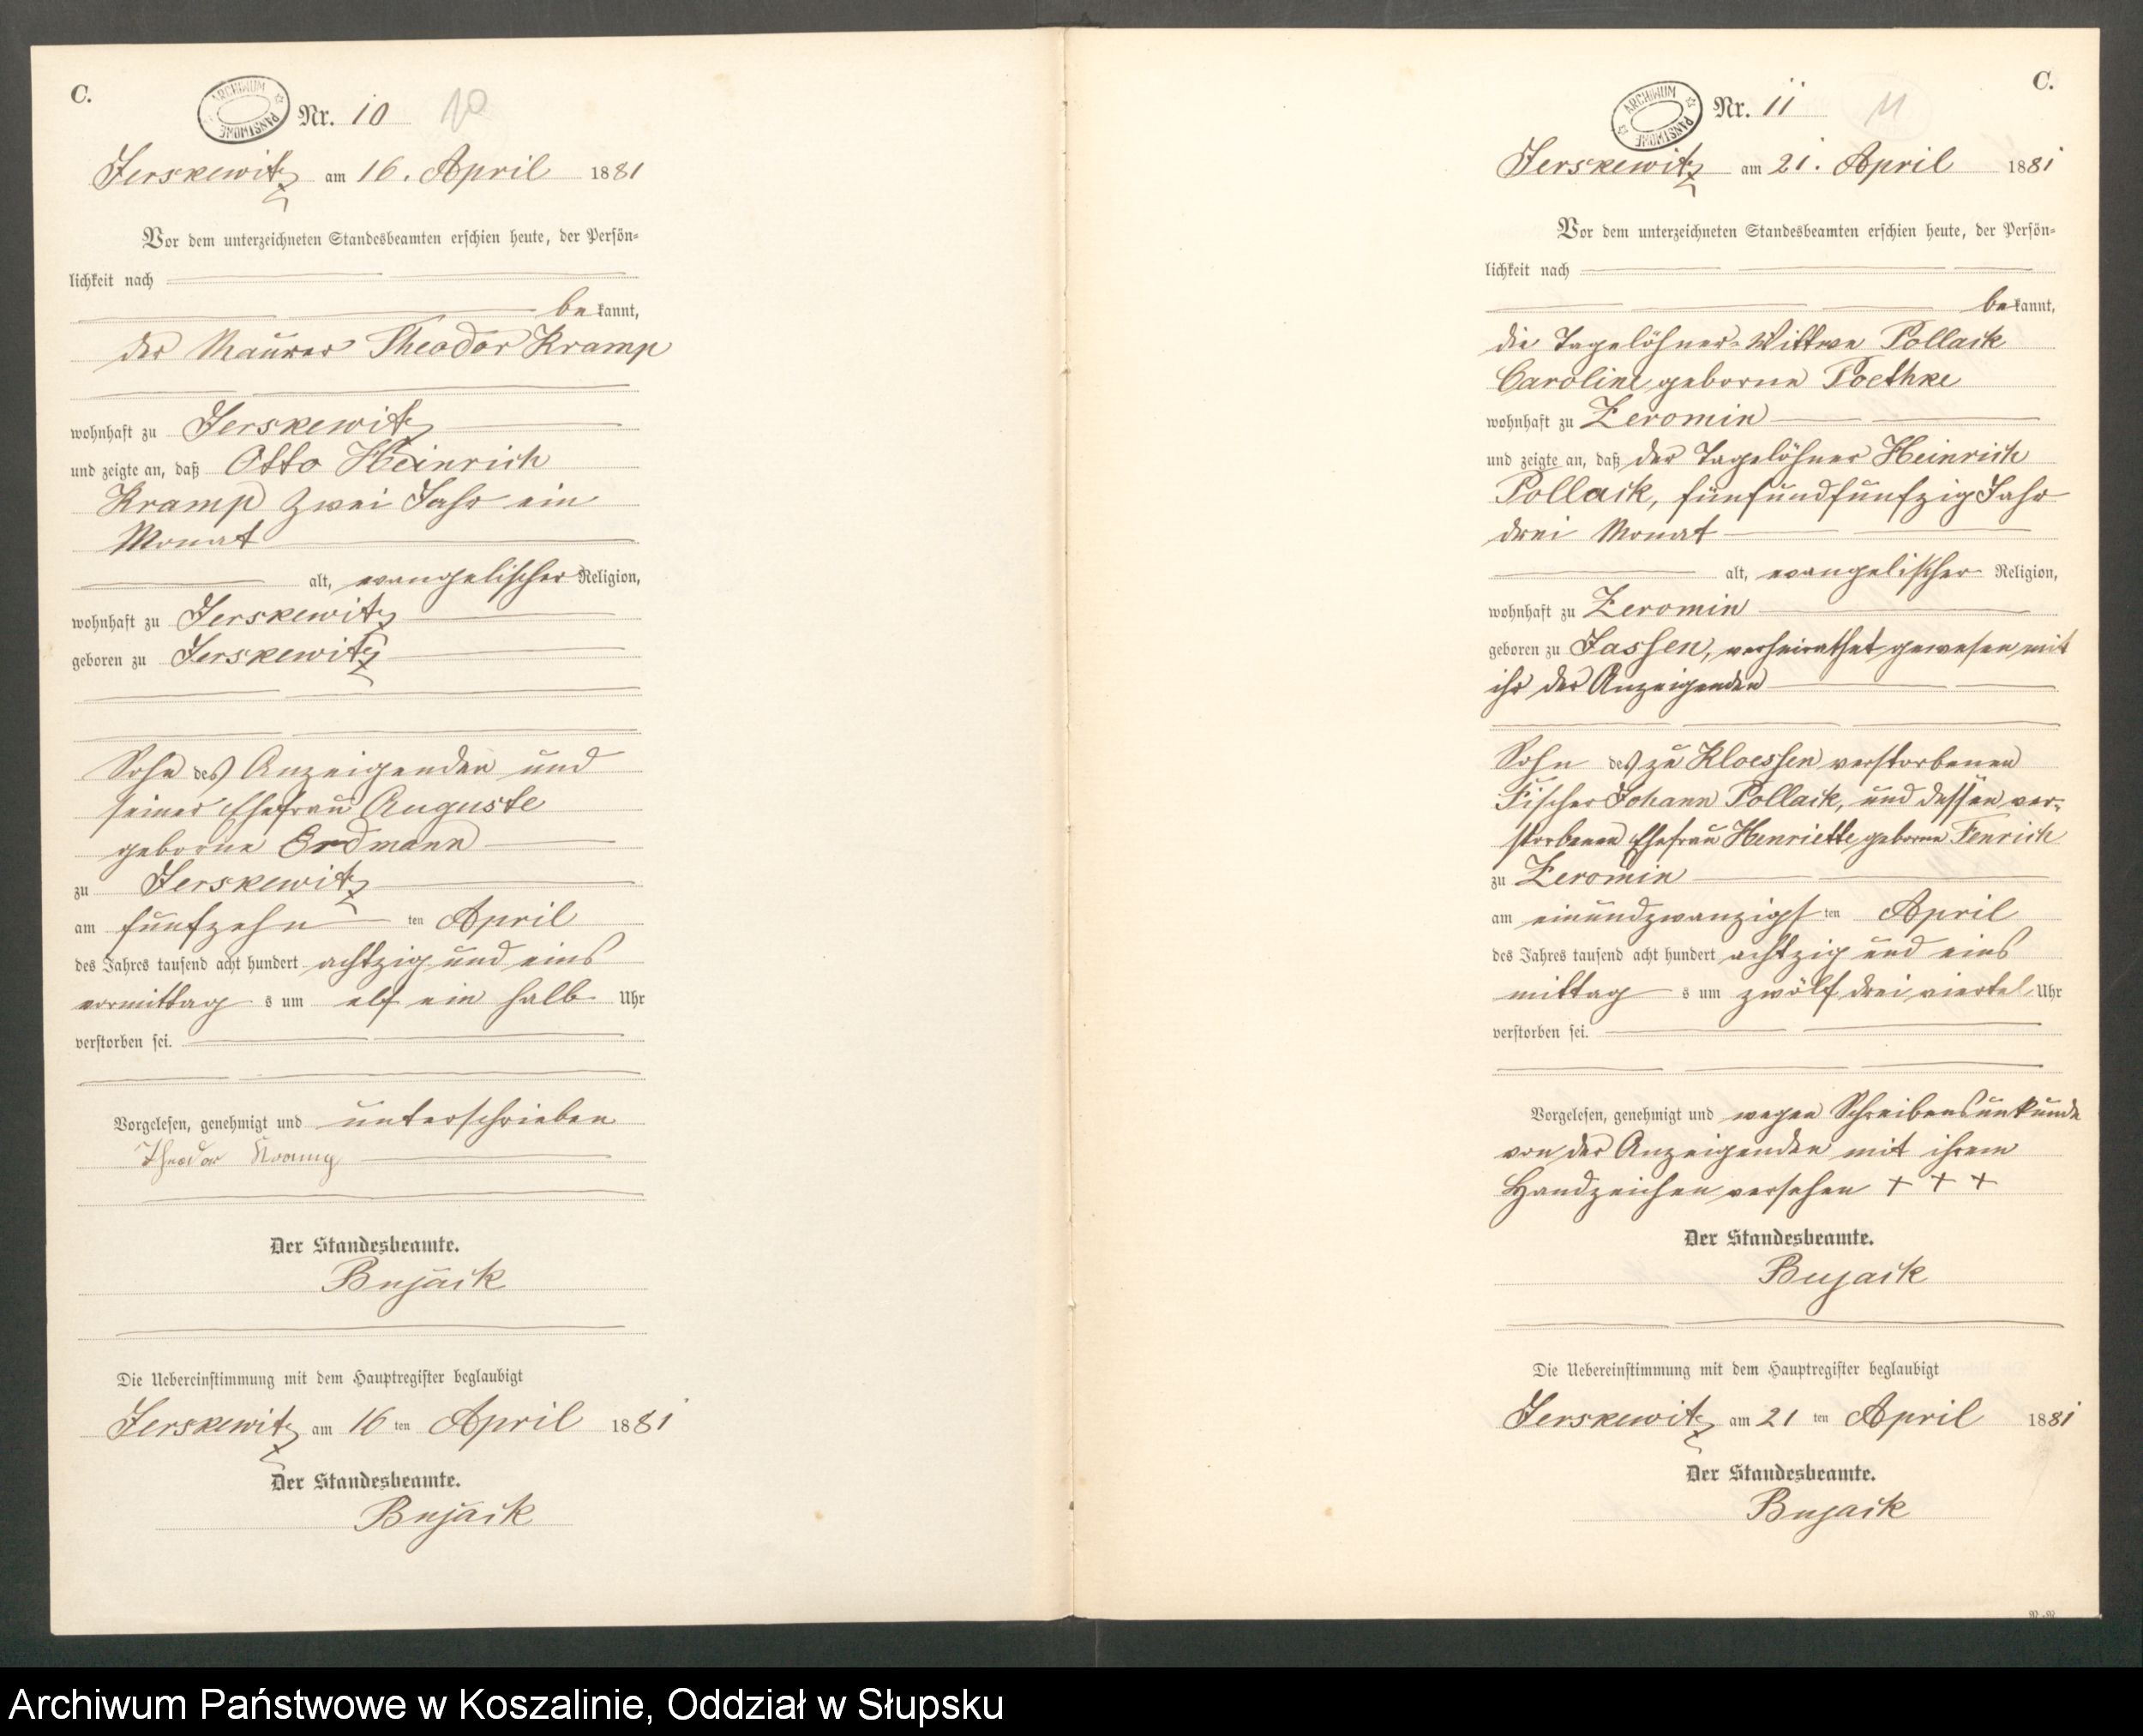 C.
ARCHIWUM PAŃSTWOWE
Nr. 10 10
Jerskewitz am 16. April 1881
Vor dem unterzeichneten Standesbeamten erschien heute, der Persön-
lichkeit nach
bekannt,
der Maurer Theodor Kramp
wohnhaft zu Jerskewitz
und zeigte an, daß Otto Heinrich
Kramp zwei Jahr ein
Monat
alt, evangelischer Religion,
wohnhaft zu Jerskewitz
geboren zu Jerskewitz
Sohn des Anzeigenden und
seiner Ehefrau Auguste
geborne Erdmann
zu Jerskewitz
am fünfzehn ten April
des Jahres tausend acht hundert achtzig und eins
vormittag s um elf ein halb Uhr
verstorben sei.
Vorgelesen, genehmigt und unterschrieben
Theodor Kramp
Der Standesbeamte.
Bujack
Die Uebereinstimmung mit dem Hauptregister beglaubigt
Jerskewitz am 16 ten April 1881
Der Standesbeamte.
Bujack
C.
ARCHIWUM PAŃSTWOWE
Nr. 11 11
Jerskewitz am 21. April 1881
Vor dem unterzeichneten Standesbeamten erschien heute, der Persön-
lichkeit nach
bekannt,
die Tagelöhner-Wittwe Pollack
Caroline geborne Poethke
wohnhaft zu Zeromin
und zeigte an, daß der Tagelöhner Heinrich
Pollack, fünfundfünfzig Jahr
drei Monat
alt, evangelischer Religion,
wohnhaft zu Zeromin
geboren zu Jassen, verheirathet gewesen mit
ihr der Anzeigenden
Sohn des zu Kloessen verstorbenen
Fischer Johann Pollack, und dessen ver-
storbenen Ehefrau Henriette geborne Fenrich
zu Zeromin
am einundzwanzigst ten April
des Jahres tausend acht hundert achtzig und eins
mittag s um zwölf drei viertel Uhr
verstorben sei.
Vorgelesen, genehmigt und wegen Schreibensunkunde
von der Anzeigenden mit ihrem
Handzeichen versehen + + +
Der Standesbeamte.
Bujack
Die Uebereinstimmung mit dem Hauptregister beglaubigt
Jerskewitz am 21 ten April 1881
Der Standesbeamte.
Bujack
Archiwum Państwowe w Koszalinie, Oddział w Słupsku